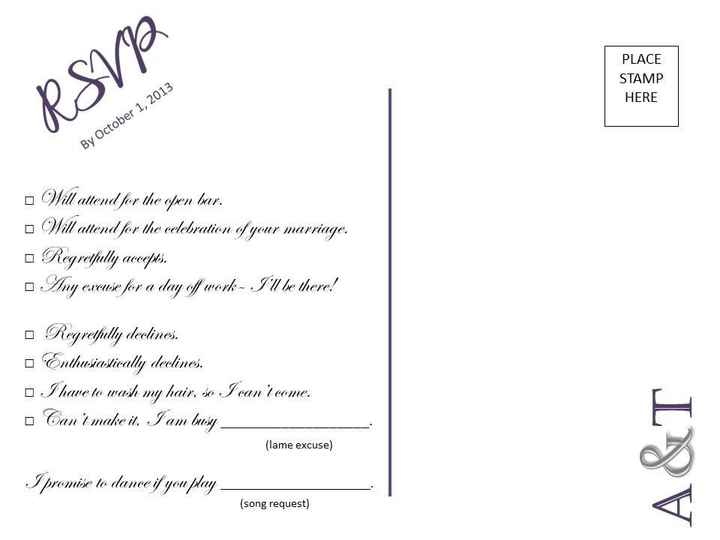 RSVP
By October 1, 2013
□ Will attend for the open bar.
□ Will attend for the celebration of your marriage.
□ Regretfully accepts.
□ Any excuse for a day off work~ I'll be there!
□ Regretfully declines.
□ Enthusiastically declines.
□ I have to wash my hair, so I can't come.
□ Can't make it, I am busy ____________________.
(lame excuse)
I promise to dance if you play ____________________.
(song request)
PLACE
STAMP
HERE
A&T